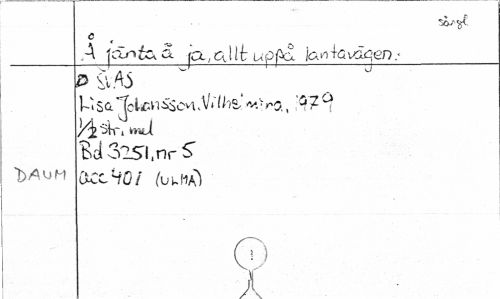 sångl.
Å jänta å ja, allt uppå lantavägen.
SVAS
Lisa Johansson, Vilhelmina, 1929
1/2 str, mel
Bd 3251, nr 5
DAUM acc 401 (ULMA)